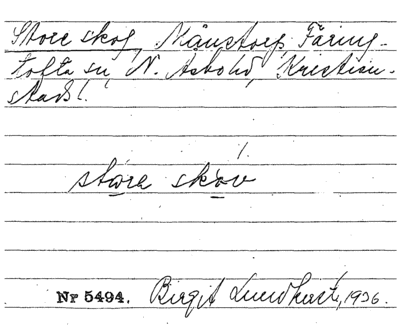 Store skog, Månstorp, Färing-
tofta sn, N. Åsbo hd, Kristian-
stads l.
stora skóv
Nr 5494. Birgit Lundkvist, 1936.